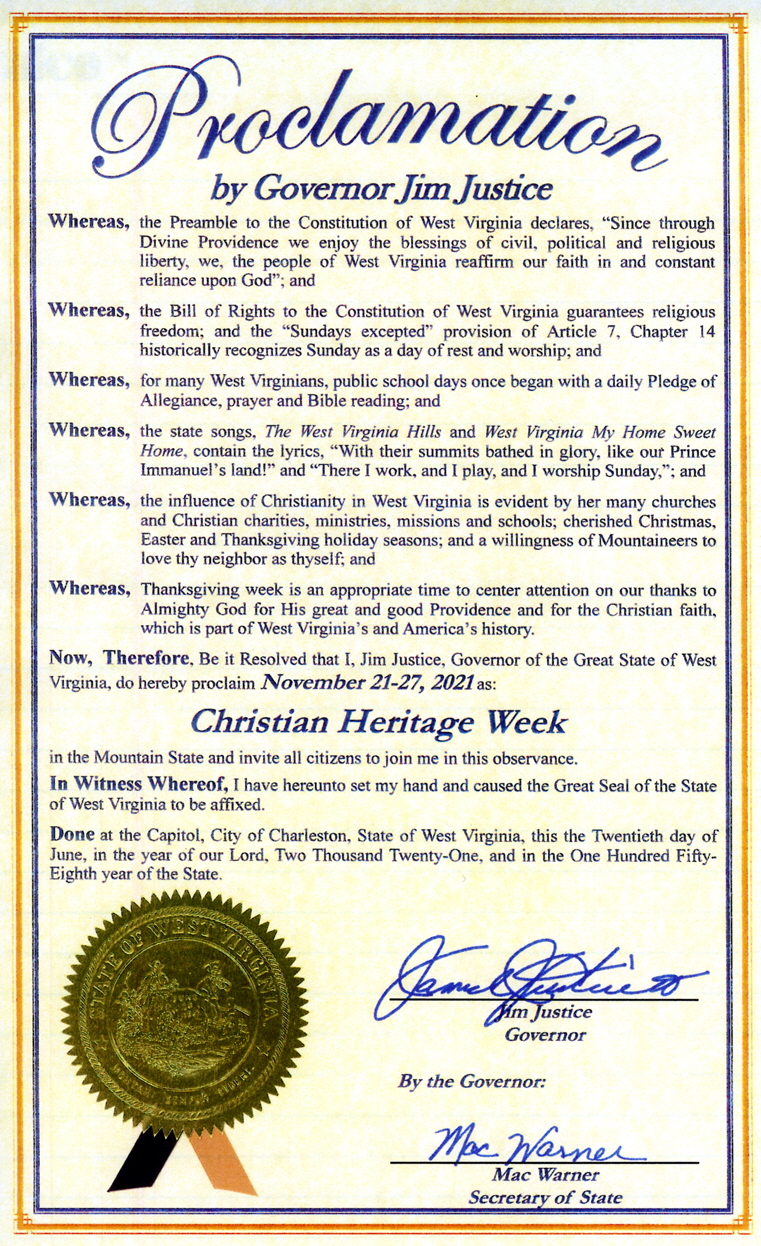 Proclamation
by Governor Jim Justice
Whereas, the Preamble to the Constitution of West Virginia declares, “Since through
Divine Providence we enjoy the blessings of civil, political and religious
liberty, we, the people of West Virginia reaffirm our faith in and constant
reliance upon God”; and
Whereas, the Bill of Rights to the Constitution of West Virginia guarantees religious
freedom; and the “Sundays excepted” provision of Article 7, Chapter 14
historically recognizes Sunday as a day of rest and worship; and
Whereas, for many West Virginians, public school days once began with a daily Pledge of
Allegiance, prayer and Bible reading; and
Whereas, the state songs, The West Virginia Hills and West Virginia My Home Sweet
Home, contain the lyrics, “With their summits bathed in glory, like our Prince
Immanuel’s land!” and “There I work, and I play, and I worship Sunday,”; and
Whereas, the influence of Christianity in West Virginia is evident by her many churches
and Christian charities, ministries, missions and schools; cherished Christmas,
Easter and Thanksgiving holiday seasons; and a willingness of Mountaineers to
love thy neighbor as thyself; and
Whereas, Thanksgiving week is an appropriate time to center attention on our thanks to
Almighty God for His great and good Providence and for the Christian faith,
which is part of West Virginia’s and America’s history.
Now, Therefore, Be it Resolved that I, Jim Justice, Governor of the Great State of West
Virginia, do hereby proclaim November 21-27, 2021 as:
Christian Heritage Week
in the Mountain State and invite all citizens to join me in this observance.
In Witness Whereof, I have hereunto set my hand and caused the Great Seal of the State
of West Virginia to be affixed.
Done at the Capitol, City of Charleston, State of West Virginia, this the Twentieth day of
June, in the year of our Lord, Two Thousand Twenty-One, and in the One Hundred Fifty-
Eighth year of the State.
STATE OF WEST VIRGINIA
Jim Justice
Governor
By the Governor:
Mac Warner
Mac Warner
Secretary of State